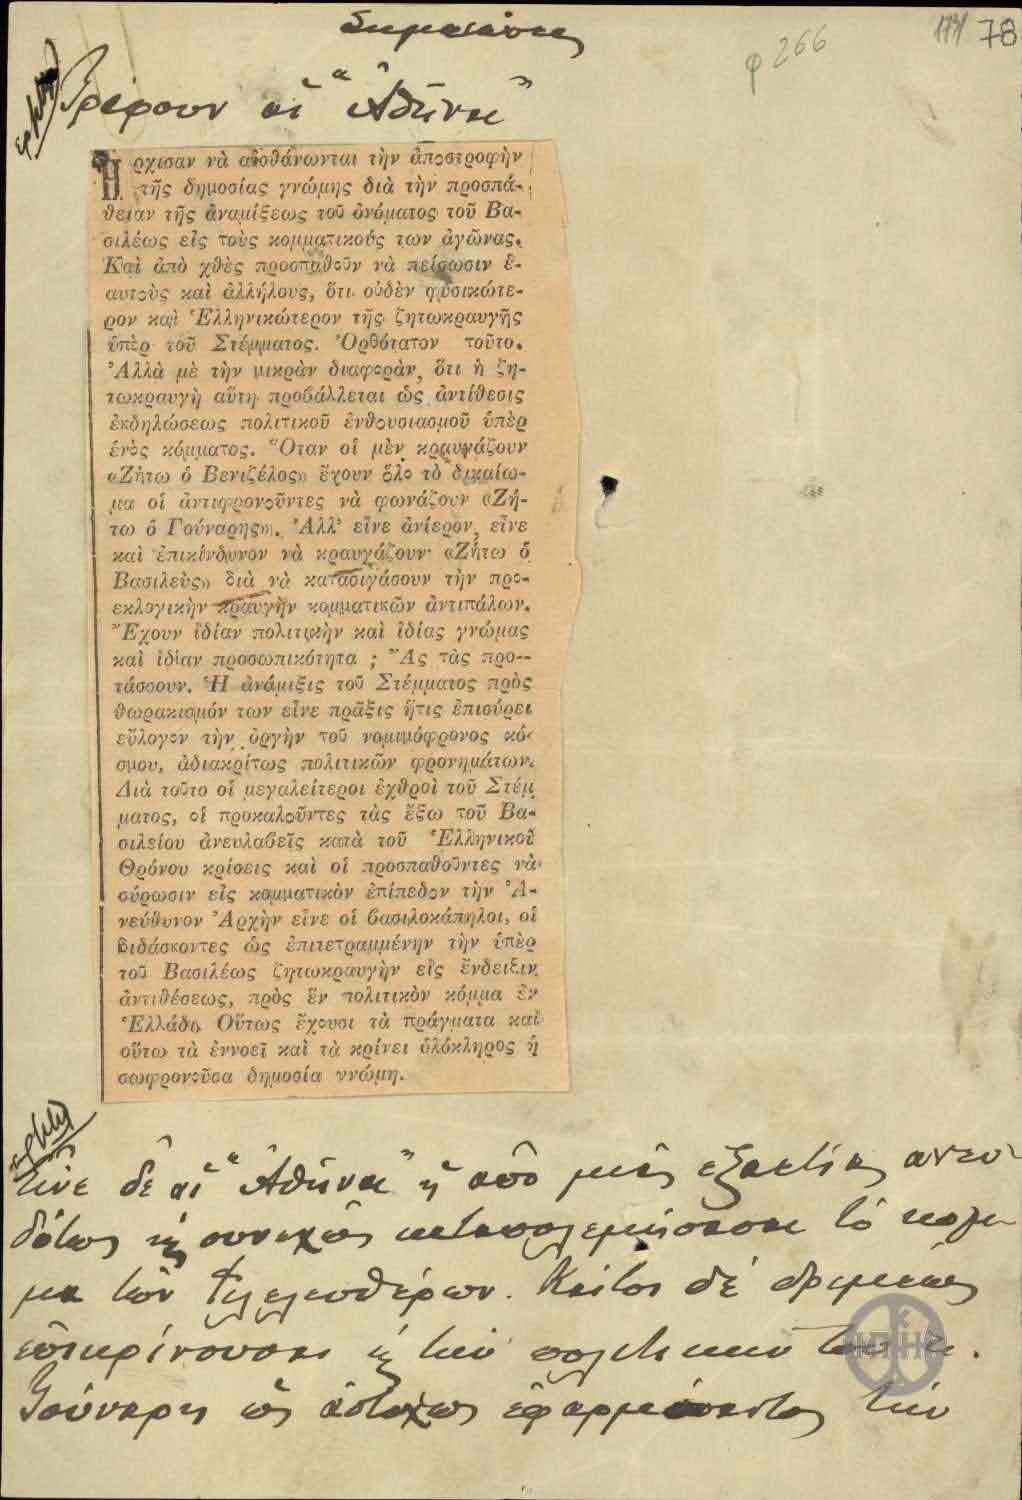 φ 266
1731
78
Γράφουν αἱ "Ἀθῆναι"
Ἤρχισαν νὰ αἰσθάνωνται τὴν ἀποστροφὴν
τῆς δημοσίας γνώμης διὰ τὴν προσπά-
θειαν τῆς ἀναμίξεως τοῦ ὀνόματος τοῦ Βα-
σιλέως εἰς τοὺς κομματικούς των ἀγῶνας.
Καὶ ἀπὸ χθὲς προσπαθοῦν νὰ πείσωσιν ἑ-
αυτοὺς καὶ ἀλλήλους, ὅτι οὐδὲν φυσικώτε-
ρον καὶ Ἑλληνικώτερον τῆς ζητωκραυγῆς
ὑπὲρ τοῦ Στέμματος. Ὀρθότατον τοῦτο.
Ἀλλὰ μὲ τὴν μικρὰν διαφοράν, ὅτι ἡ ζη-
τωκραυγὴ αὕτη προβάλλεται ὡς ἀντίθεσις
ἐκδηλώσεως πολιτικοῦ ἐνθουσιασμοῦ ὑπὲρ
ἑνὸς κόμματος. Ὅταν οἱ μὲν κραυγάζουν
«Ζήτω ὁ Βενιζέλος» ἔχουν ὅλο τὸ δικαίω-
μα οἱ ἀντιφρονοῦντες νὰ φωνάζουν «Ζή-
τω ὁ Γούναρης». Ἀλλ' εἶνε ἀνίερον, εἶνε
καὶ ἐπικίνδυνον νὰ κραυγάζουν «Ζήτω ὁ
Βασιλεὺς» διὰ νὰ κατασιγάσουν τὴν προ-
εκλογικὴν κραυγὴν κομματικῶν ἀντιπάλων.
Ἔχουν ἰδίαν πολιτικὴν καὶ ἰδίας γνώμας
καὶ ἰδίαν προσωπικότητα ; Ἂς τὰς προ--
τάσσουν. Ἡ ἀνάμιξις τοῦ Στέμματος πρὸς
θωρακισμόν των εἶνε πρᾶξις ἥτις ἐπισύρει
εὔλογον τὴν ὀργὴν τοῦ νομιμόφρονος κό-
σμου, ἀδιακρίτως πολιτικῶν φρονημάτων.
Διὰ τοῦτο οἱ μεγαλείτεροι ἐχθροὶ τοῦ Στέμ
ματος, οἱ προκαλοῦντες τὰς ἔξω τοῦ Βα-
σιλείου ἀνευλαβεῖς κατὰ τοῦ Ἑλληνικοῦ
Θρόνου κρίσεις καὶ οἱ προσπαθοῦντες νὰ
σύρωσιν εἰς κομματικὸν ἐπίπεδον τὴν Ἀ-
νεύθυνον Ἀρχὴν εἶνε οἱ βασιλοκάπηλοι, οἱ
διδάσκοντες ὡς ἐπιτετραμμένην τὴν ὑπὲρ
τοῦ Βασιλέως ζητωκραυγὴν εἰς ἔνδειξιν
ἀντιθέσεως, πρὸς ἓν πολιτικὸν κόμμα ἐν
Ἑλλάδι. Οὕτως ἔχουσι τὰ πράγματα καὶ
οὕτω τὰ ἐννοεῖ καὶ τὰ κρίνει ὁλόκληρος ἡ
σωφρονοῦσα δημοσία γνώμη.
Εἶνε δὲ αἱ "Ἀθῆναι" ἡ ἀπὸ μιᾶς ἑξαετίας ἀνεν-
δότως καὶ συνεχῶς καταπολεμήσασαι τὸ κόμ-
μα τῶν Φιλελευθέρων. Καίτοι δὲ δριμέως
ἐπικρίνουσαι καὶ τὴν πολιτικὴν τοῦ κ.
Γούναρη ὡς ἀστόχως ἐφαρμόσαντος τὴν